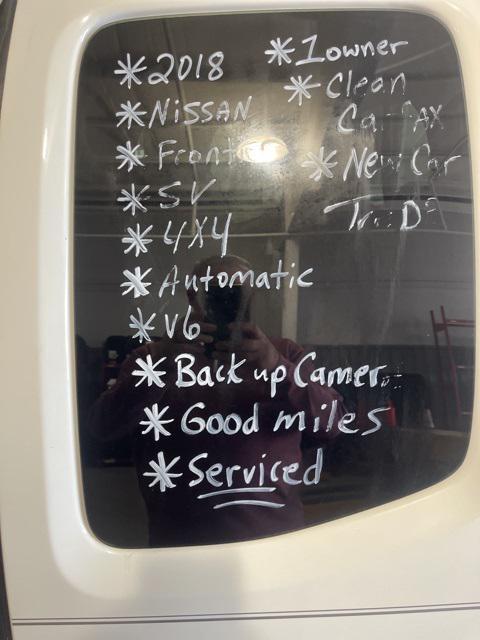 * 2018
* NISSAN
* Front
* SV
* 4X4
* Automatic
* V6
* Back up Camer
* Good miles
* Serviced
* 1owner
* Clean
CarFAX
* New Car